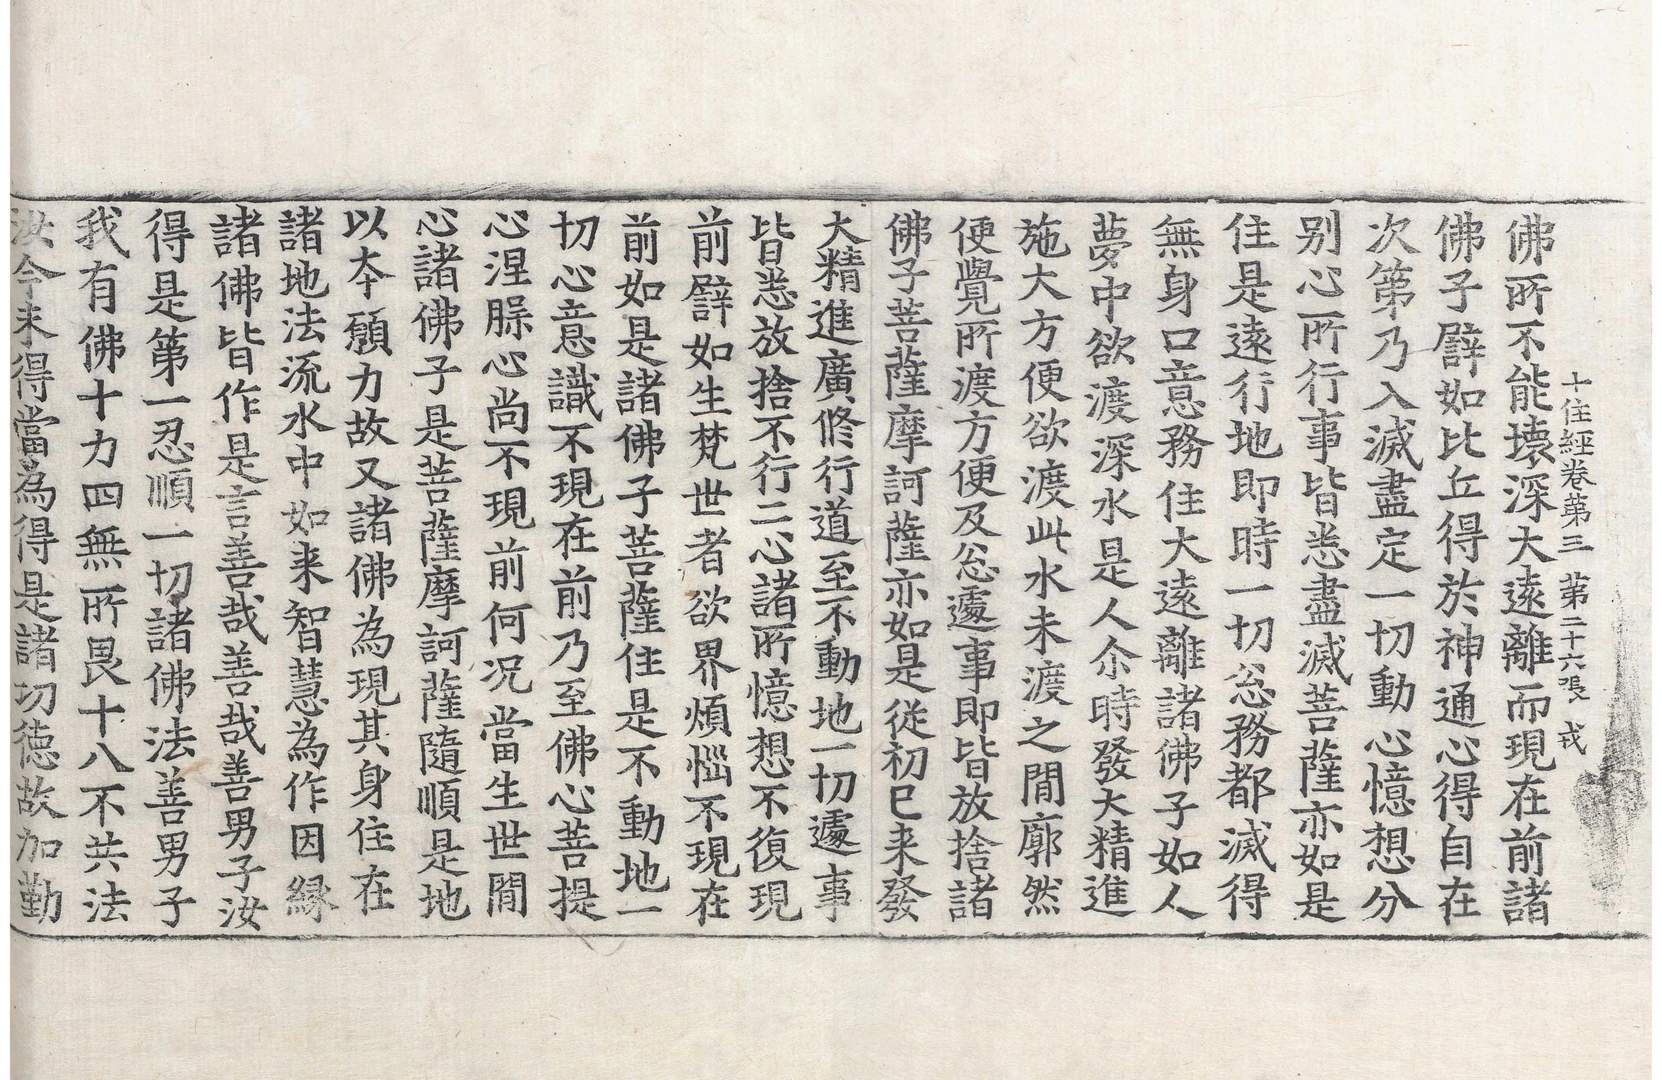 十住經卷第三 第二十六張 戎
佛所不能壞深大遠離而現在前諸
佛子譬如比丘得於神通心得自在
次第乃入滅盡定一切動心憶想分
别心所行事皆悉盡滅菩薩亦如是
住是遠行地即時一切忩務都滅得
無身口意務住大遠離諸佛子如人
夢中欲渡深水是人尒時發大精進
施大方便欲渡此水未渡之間廓然
便覺所渡方便及忩遽事即皆放捨諸
佛子菩薩摩訶薩亦如是從初已来發
大精進廣修行道至不動地一切遽事
皆悉放捨不行二心諸所憶想不復現
前譬如生梵世者欲界煩惱不現在
前如是諸佛子菩薩住是不動地一
切心意識不現在前乃至佛心菩提
心涅槃心尚不現前何况當生世間
心諸佛子是菩薩摩訶薩隨順是地
以本願力故又諸佛為現其身住在
諸地法流水中如来智慧為作因縁
諸佛皆作是言善哉善哉善男子汝
得是第一忍順一切諸佛法善男子
我有佛十力四無所畏十八不共法
汝今未得當為得是諸功徳故加勤